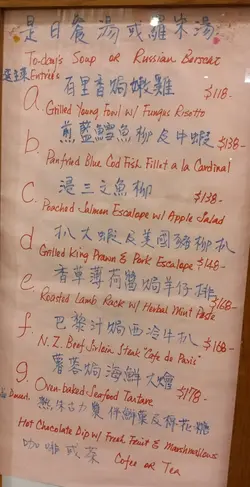 是日餐湯或羅宋湯
Today's Soup or Russian Borscht
Entrée
a. 百里香焗嫩雞 $118-
Grilled Young Fowl w/ Fungus Risotto
b. 煎藍鱈魚柳及中蝦 $138-
Panfried Blue Cod Fish Fillet a la Cardinal
c. 浸三文魚柳 $138-
Poached Salmon Escalope w/ Apple Salad
d 扒大蝦及美國豬柳扒
Grilled King Prawn & Pork Escalope $148-
e. 香草薄荷醬焗羊仔排
Roasted Lamb Rack w/ Herbal Mint Paste $168-
f. 巴黎汁焗西冷牛扒 $168-
N.Z. Beef Sirloin Steak "Cafe de Paris"
g. 薯蓉焗海鮮大燴
Oven-baked Seafood Tartare $178-
Dessert 熱朱古力 伴鮮菓及棉花糖
Hot Chocolate Dip w/ Fresh Fruit & Marshmallows
咖啡或茶 Cofee or Tea